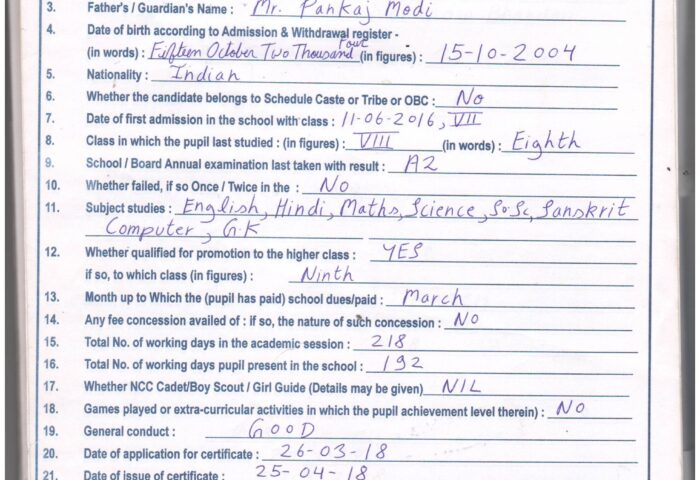 3. Father's / Guardian's Name : Mr. Pankaj Modi
4. Date of birth according to Admission & Withdrawal register -
(in words) : Fifteen October Two Thousand Four (in figures) : 15-10-2004
5. Nationality : Indian
6. Whether the candidate belongs to Schedule Caste or Tribe or OBC : No
7. Date of first admission in the school with class : 11-06-2016, VII
8. Class in which the pupil last studied : (in figures) : VIII (in words) : Eighth
9. School / Board Annual examination last taken with result : A2
10. Whether failed, if so Once / Twice in the : No
11. Subject studies : English, Hindi, Maths, Science, So.Sc, Sanskrit
Computer, G.K
12. Whether qualified for promotion to the higher class : YES
if so, to which class (in figures) : Ninth
13. Month up to Which the (pupil has paid) school dues/paid : March
14. Any fee concession availed of : if so, the nature of such concession : NO
15. Total No. of working days in the academic session : 218
16. Total No. of working days pupil present in the school : 192
17. Whether NCC Cadet/Boy Scout / Girl Guide (Details may be given) NIL
18. Games played or extra-curricular activities in which the pupil achievement level therein) : NO
19. General conduct : GOOD
20. Date of application for certificate : 26-03-18
21. Date of issue of certificate : 25-04-18